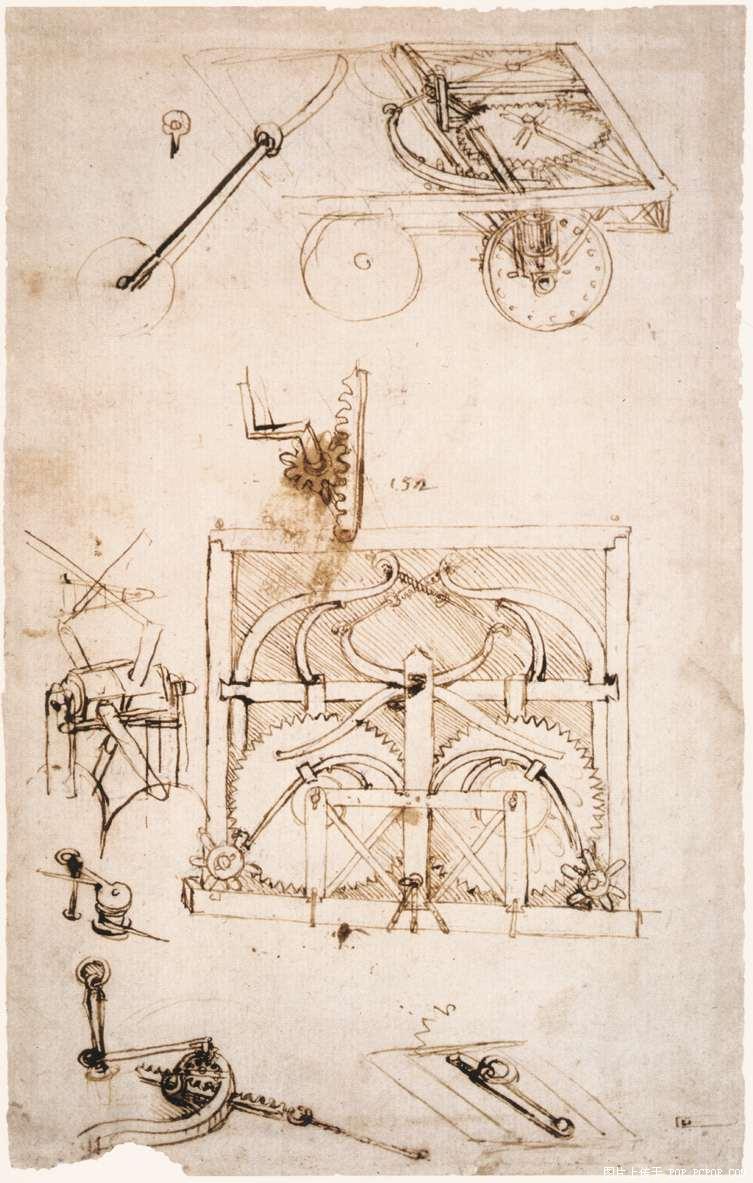 图片上传于 POP.PCPOP.COM